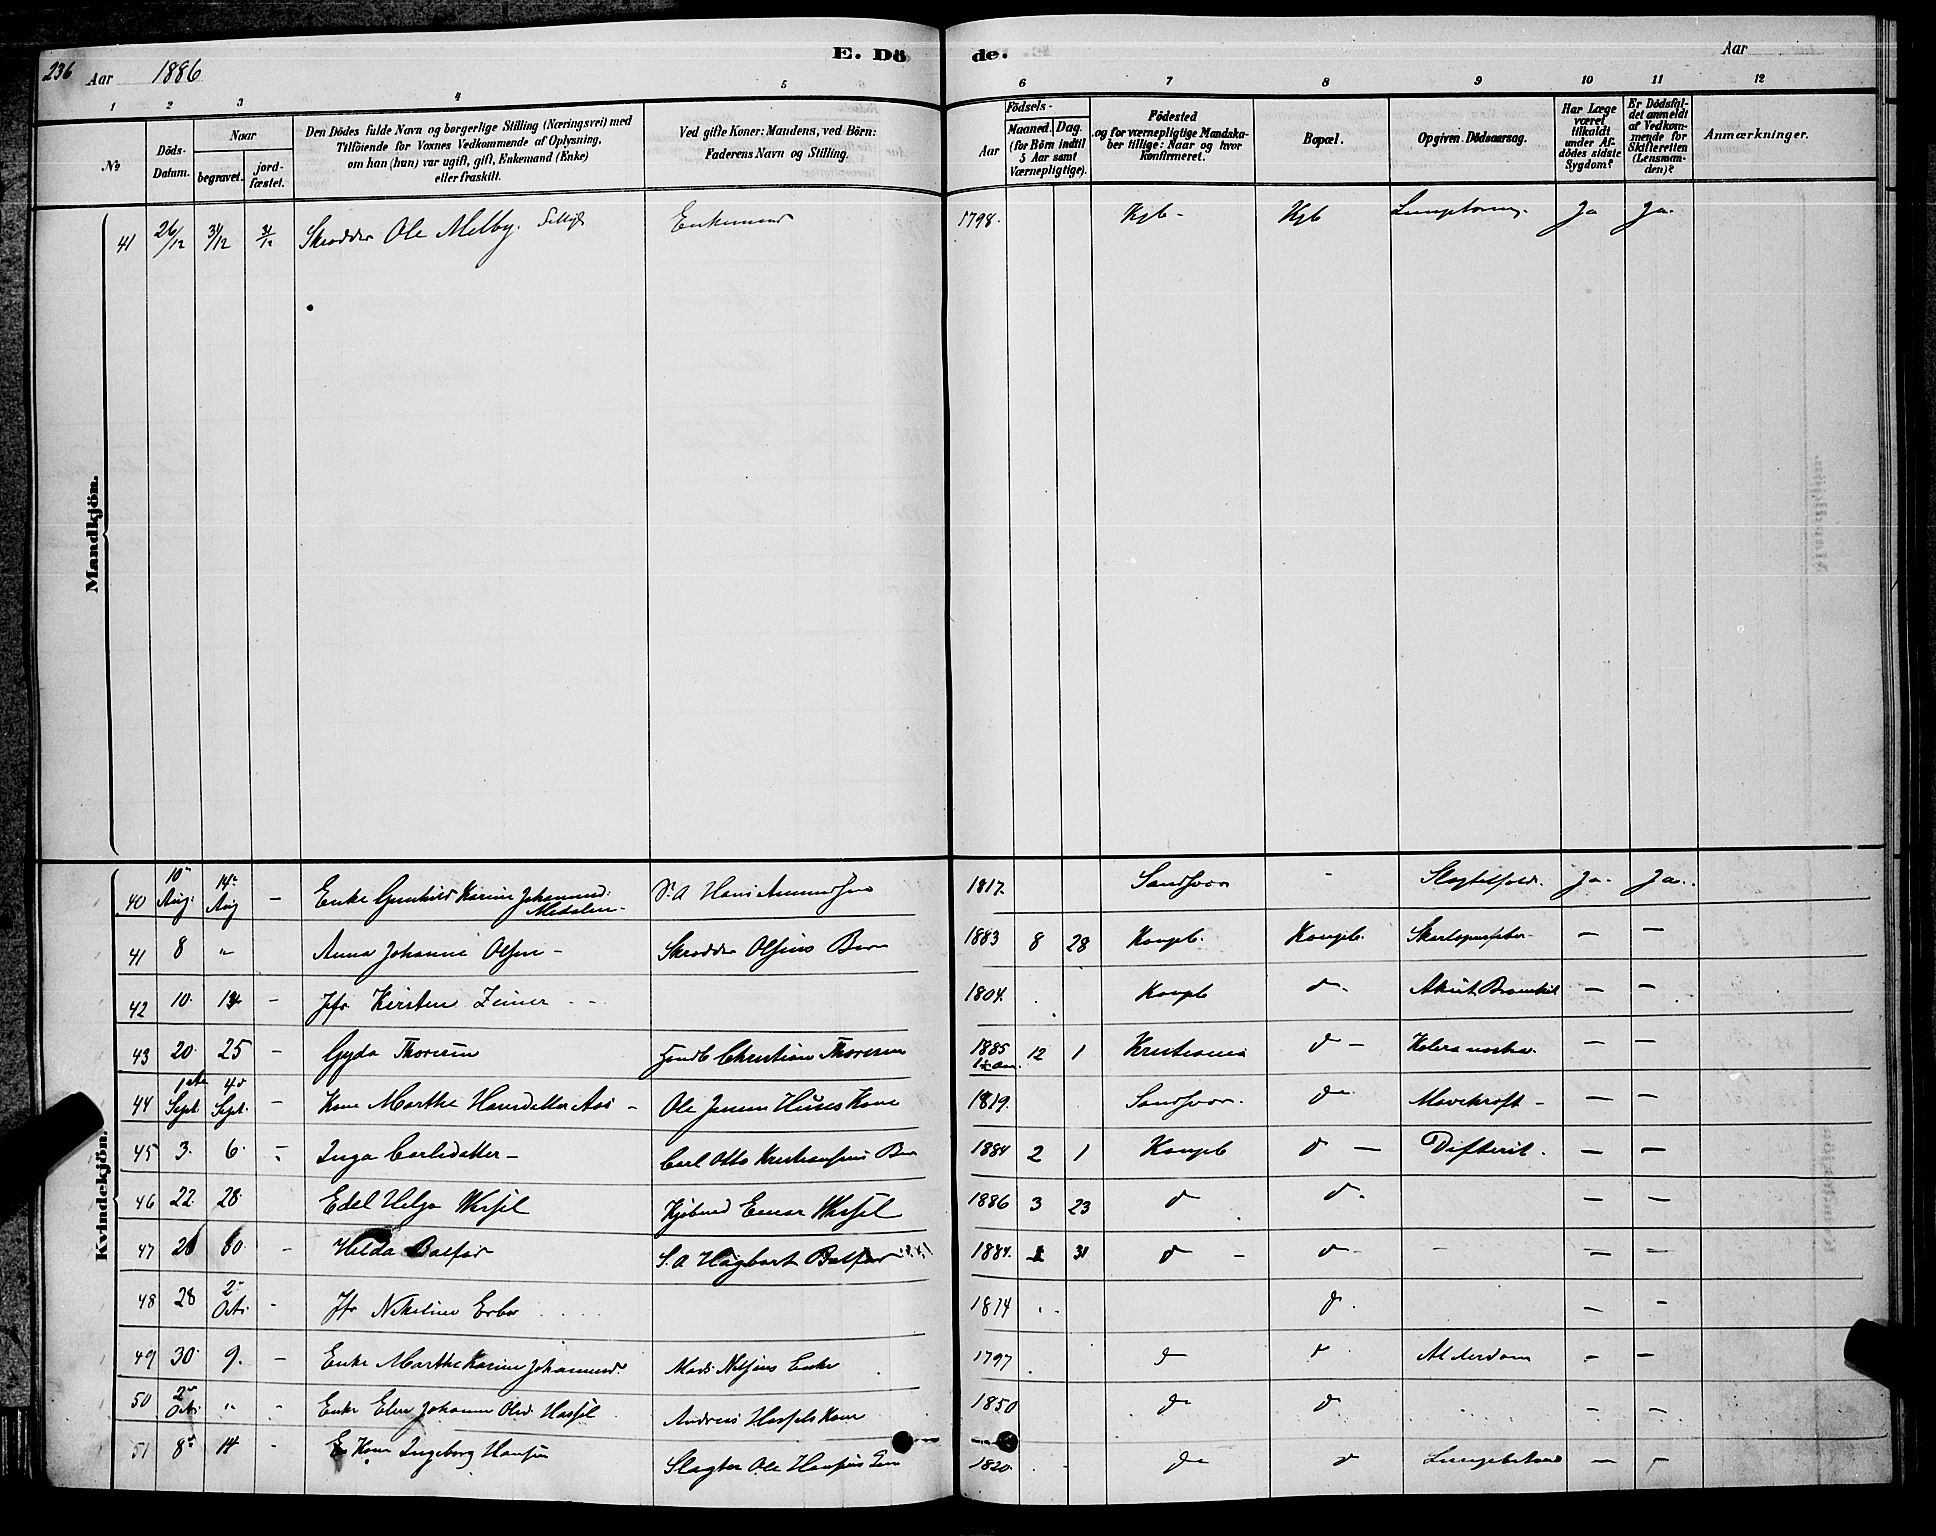 236 Aar 1886 E. Dö de. Aar
1 2 3 4 5 6 7 8 9 10 11 12
№
Döds-
Datum.
Naar
begravet.
jord-
fæstet.
Den Dödes fulde Navn og borgerlige Stilling (Næringsvei) med
Tilföiende for Voxnes Vedkommende af Oplysning,
om han (hun) var ugift, gift, Enkemand (Enke)
eller fraskilt.
Ved gifte Koner: Mandens, ved Börn:
Faderens Navn og Stilling.
Aar
Födsels-
Maaned. Dag.
(for Börn indtil
5 Aar samt
Værnepligtige).
Födested
og for værnepligtige Mandska-
ber tillige: Naar og hvor
konfirmeret.
Bopæl.
Opgiven Dödsaarsag.
Har Læge
været
tilkaldt
under Af-
dödes sidste
Sygdom?
Er Dödsfal-
det anmeldt
af Vedkom-
mende for
Skifteretten
(Lensman-
den)?
Anmærkninger.
Mandkjön.
41 26/12 31/12 31/12 Skrædder Ole Melby. Enkemand 1798. Kgb- Kgb Ja Ja.
Kvindekjön.
40 10 Aug. 14 Aug - Enke Gunhild Karine Johannesd: 1817. Sandsvær - Ja. Ja.
41 8 " Anna Johanne Olsen - Skrædder Olsens Barn 1883 8 28 Kongsb. Kongsb. - -
42 10. 14 - Jfr Kirsten 1804. Kongsb d. Akut - -
43 20. 25 - Gyda Thoresen Christian Thoresen 1885 12 1 Kristiania d - - -
44 1 Sept. 4 Sept. - Kone Marthe Hansdatter Aas - Ole Jensen Kone 1819. Sandsvær. d - -
45 3. 6. - Inga Carlsdatter - Carl Otto Kristiansens Barn 1884 2 1 Kongsb d - Difterit. - -
46 22. 28. Edel Helga Wessel Kjøbmd Einar Wessel 1886 3 23 d d. - -
47 26 30. - Hilda Balfør S.A Hagbart Balfør 1884. 1 31 d - d - - - -
48 28 2 Oct. - Jfr Nikoline 1814 d. - -
49 30. 9. - Enke Marthe Karine Johannesd. Mads Nilsens Enke 1797 d d Alderdom - -
50 2 Oct. " - Enke Elen Johanne Olsd. Hassel Andreas Hassels Kone 1850 d d
51 8 14 - Kone Ingeborg Hansen Slagter Ole Hansens 1820. d d - -